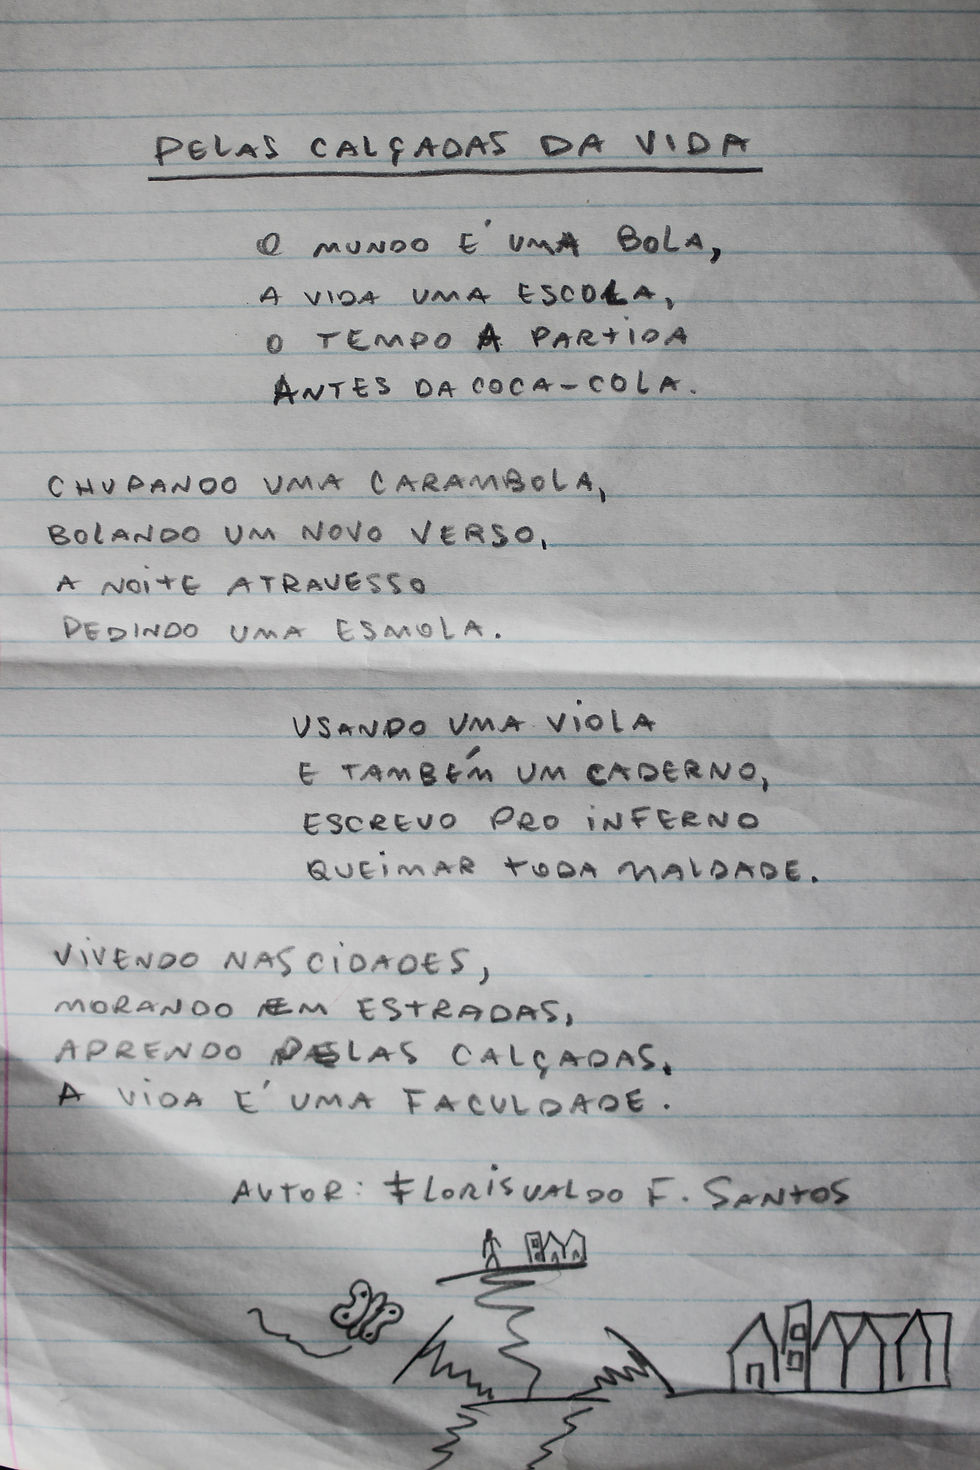 PELAS CALÇADAS DA VIDA
O MUNDO É UMA BOLA,
A VIDA UMA ESCOLA,
O TEMPO A PARTIDA
ANTES DA COCA-COLA.
CHUPANDO UMA CARAMBOLA,
BOLANDO UM NOVO VERSO,
A NOITE ATRAVESSO
PEDINDO UMA ESMOLA.
USANDO UMA VIOLA
E TAMBÉM UM CADERNO,
ESCREVO PRO INFERNO
QUEIMAR TODA MALDADE.
VIVENDO NAS CIDADES,
MORANDO EM ESTRADAS,
APRENDO PELAS CALÇADAS,
A VIDA É UMA FACULDADE.
AUTOR: FLORISVALDO F. SANTOS